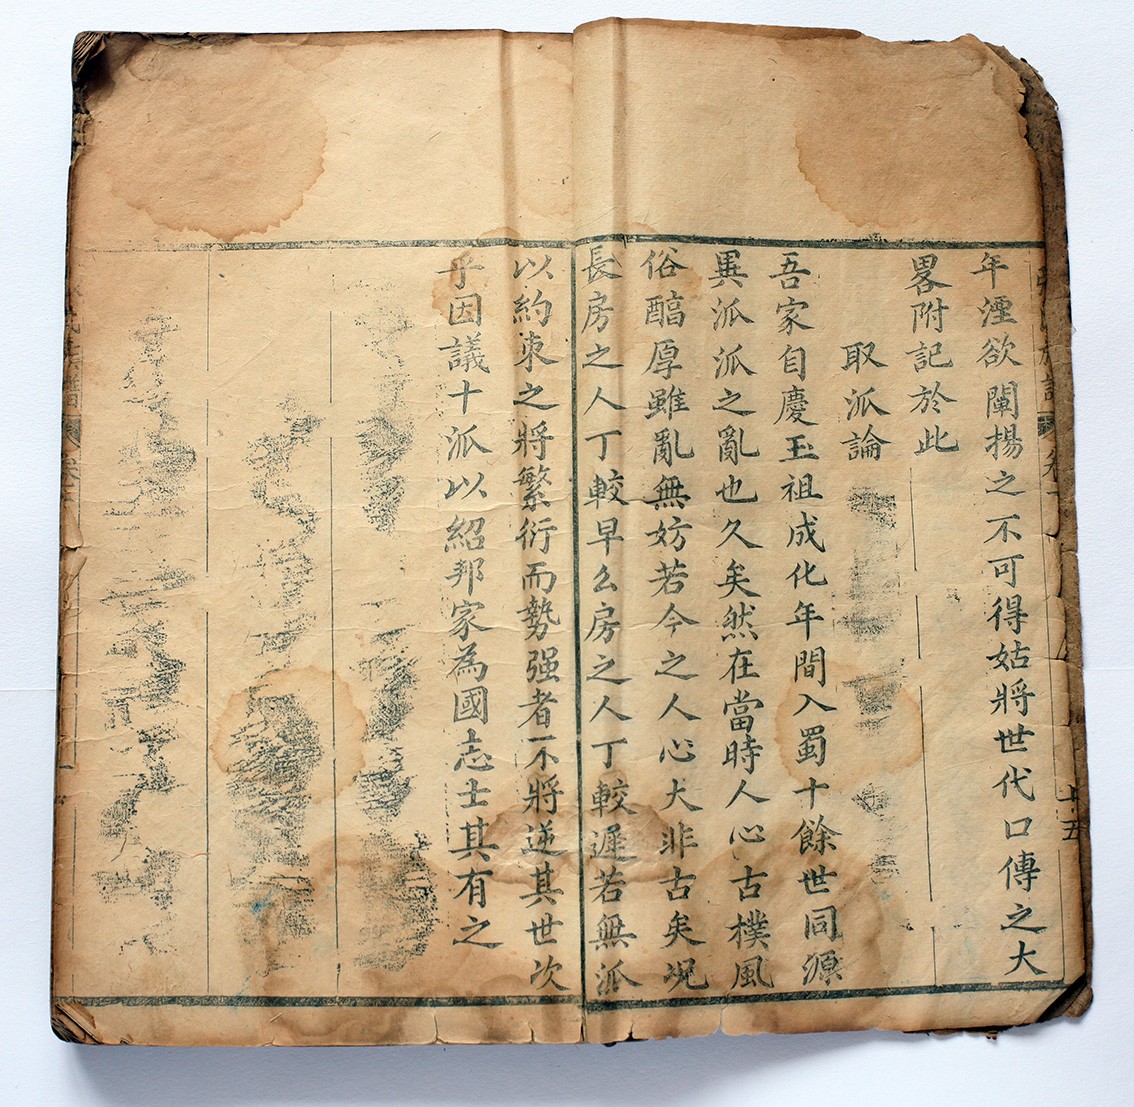 年湮欲闡揚之不可得姑將世代口傳之大
畧附記於此
取派論
吾家自慶玉祖成化年間入蜀十餘世同源
異派派之亂也久矣然在當時人心古樸風
俗醕厚雖亂無妨若今之人心大非古矣况
長房之人丁較早么房之人丁較遲若無派
以約束之將繁衍而勢强者不將逆其世次
乎因議十派以紹邦家為國志士其有之